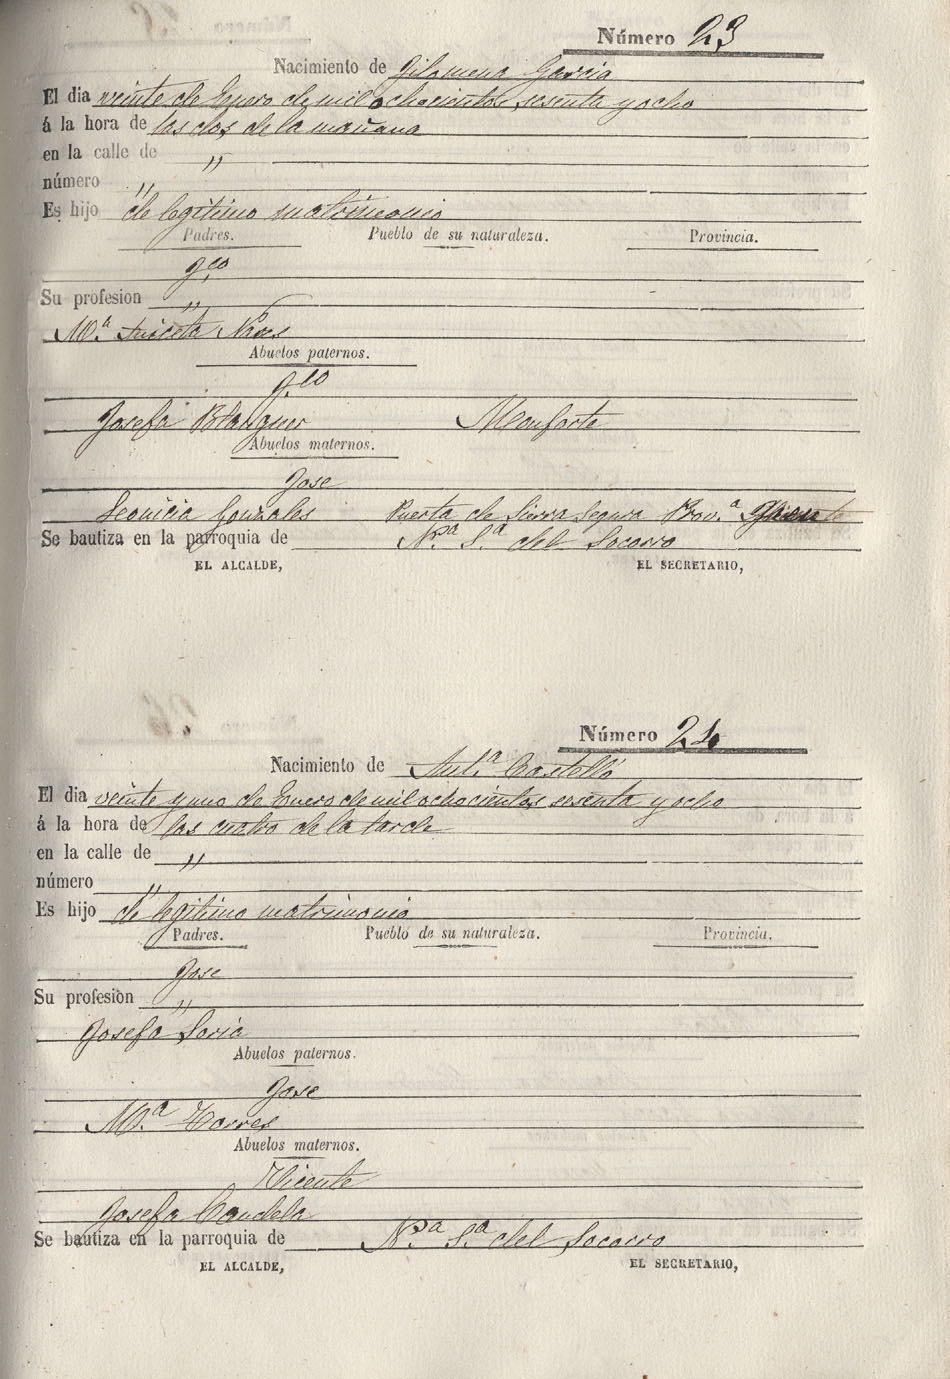 Número 23
Nacimiento de Filomena Garcia
El dia veinte de Enero de mil ochocientos sesenta y ocho
á la hora de las dos de la mañana
en la calle de "
número "
Es hijo de legitimo matrimonio
Padres. Pueblo de su naturaleza. Provincia.
Fco
Su profesion "
Mª Aniceta
Abuelos paternos.
Fco
Josefa Monforte
Abuelos maternos.
Jose
Leonicia Gonzales Puerta de Sierra Segura Prov.ª
Se bautiza en la parroquia de Nª Sª del Socorro
EL ALCALDE, EL SECRETARIO,
Número 24
Nacimiento de Antª Castelló
El dia veinte y uno de Enero de mil ochocientos sesenta y ocho
á la hora de las cuatro de la tarde
en la calle de "
número "
Es hijo de legitimo matrimonio
Padres. Pueblo de su naturaleza. Provincia.
Jose
Su profesion "
Josefa Soria
Abuelos paternos.
Jose
Mª Torres
Abuelos maternos.
Vicente
Josefa Candela
Se bautiza en la parroquia de Nª Sª del Socorro
EL ALCALDE, EL SECRETARIO,